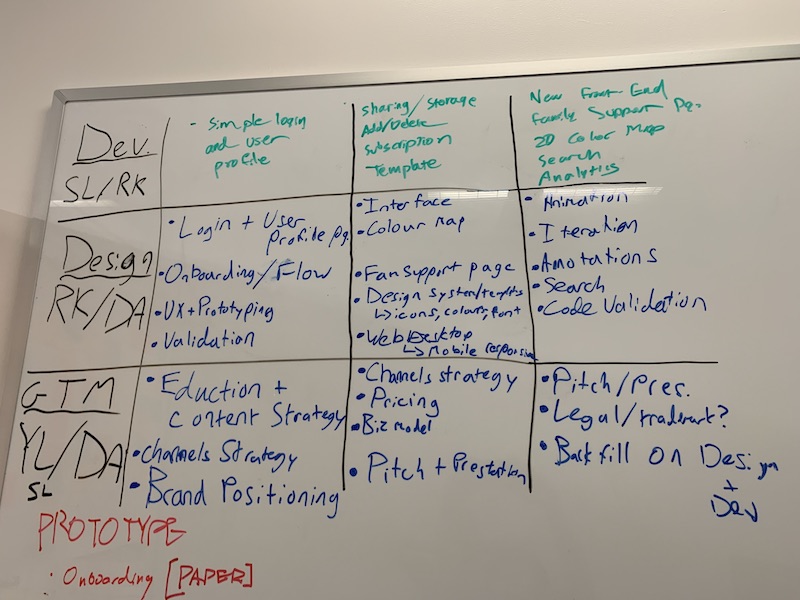 Dev.
SL/RK
- Simple login
and user
profile
Sharing/Storage
Add/Delete
Subscription
Template
New Front End
Family Support Pg.
2D Color Map
Search
Analytics
Design
RK/DA
• Login + User
Profile Pg.
• Onboarding/Flow
• UX+Prototyping
• Validation
• Interface
• Colour Map
• Fan Support page
• Design system/templts
↳ icons, colours, font
• Web Desktop
↳ Mobile responsive
• Animation
• Iteration
• Anotations
• Search
• Code Validation
GTM
YL/DA
SL
• Eduction +
Content Strategy
• Channels Strategy
• Brand Positioning
• Channels strategy
• Pricing
• Biz Model
• Pitch + Prestation
• Pitch/Pres.
• Legal/trademark?
• Backfill on Design
+
Dev
PROTOTYPE
: Onboarding [PAPER]